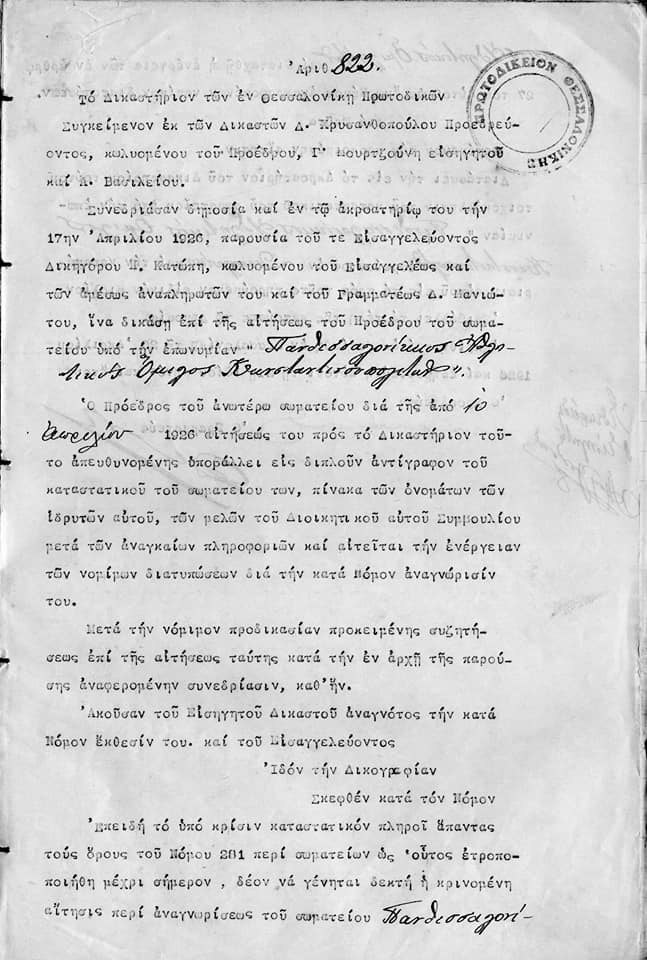 Ἀριθ. 822.
ΠΡΩΤΟΔΙΚΕΙΟΝ ΘΕΣΣΑΛΟΝΙΚΗΣ
Τό Δικαστήριον τῶν ἐν Θεσσαλονίκῃ Πρωτοδικῶν
Συγκείμενον ἐκ τῶν Δικαστῶν Δ. Χρυσανθοπούλου Προεδρεύ-
οντος, κωλυομένου τοῦ Προέδρου, Γ. Μουρτζούνη εἰσηγητοῦ
καί Α. Βασιλείου.
Συνεδριάσαν δημοσίᾳ καί ἐν τῷ ἀκροατηρίῳ του τήν
17ην Ἀπριλίου 1926, παρουσίᾳ τοῦ τε Εἰσαγγελεύοντος
Δικηγόρου Κατώπη, κωλυομένου τοῦ Εἰσαγγελέως καί
τῶν ἀμέσως ἀναπληρωτῶν του καί τοῦ Γραμματέως Δ. Μανιώ-
του, ἵνα δικάσῃ ἐπί τῆς αἰτήσεως τοῦ Προέδρου τοῦ σωμα-
τείου ὑπό τήν ἐπωνυμίαν " Πανθεσσαλονίκειος Ἀθλη-
τικός Ὅμιλος Κωνσταντινουπολιτῶν".
Ὁ Πρόεδρος τοῦ ἀνωτέρω σωματείου διά τῆς ἀπό 10
Ἀπριλίου 1926 αἰτήσεώς του πρός τό Δικαστήριον τοῦ-
το ἀπευθυνομένης ὑποβάλλει εἰς διπλοῦν ἀντίγραφον τοῦ
καταστατικοῦ τοῦ σωματείου των, πίνακα τῶν ὀνομάτων τῶν
ἱδρυτῶν αὐτοῦ, τῶν μελῶν τοῦ Διοικητικοῦ αὐτοῦ Συμβουλίου
μετά τῶν ἀναγκαίων πληροφοριῶν καί αἰτεῖται τήν ἐνέργειαν
τῶν νομίμων διατυπώσεων διά τήν κατά Νόμον ἀναγνώρισίν
του.
Μετά τήν νόμιμον προδικασίαν προκειμένης συζητή-
σεως ἐπί τῆς αἰτήσεως ταύτης κατά τήν ἐν ἀρχῇ τῆς παρού-
σης ἀναφερομένην συνεδρίασιν, καθ'ἥν.
Ἀκοῦσαν τοῦ Εἰσηγητοῦ Δικαστοῦ ἀναγνότος τήν κατά
Νόμον ἔκθεσίν του. καί τοῦ Εἰσαγγελεύοντος
Ἰδόν τήν Δικογραφίαν
Σκεφθέν κατά τόν Νόμον
Ἐπειδή τό ὑπό κρίσιν καταστατικόν πληροῖ ἅπαντας
τούς ὅρους τοῦ Νόμου 281 περί σωματείων ὡς οὗτος ἐτροπο-
ποιήθη μέχρι σήμερον , δέον νά γένηται δεκτή ἡ κρινομένη
αἴτησις περί ἀναγνωρίσεως τοῦ σωματείου Πανθεσσαλονί-